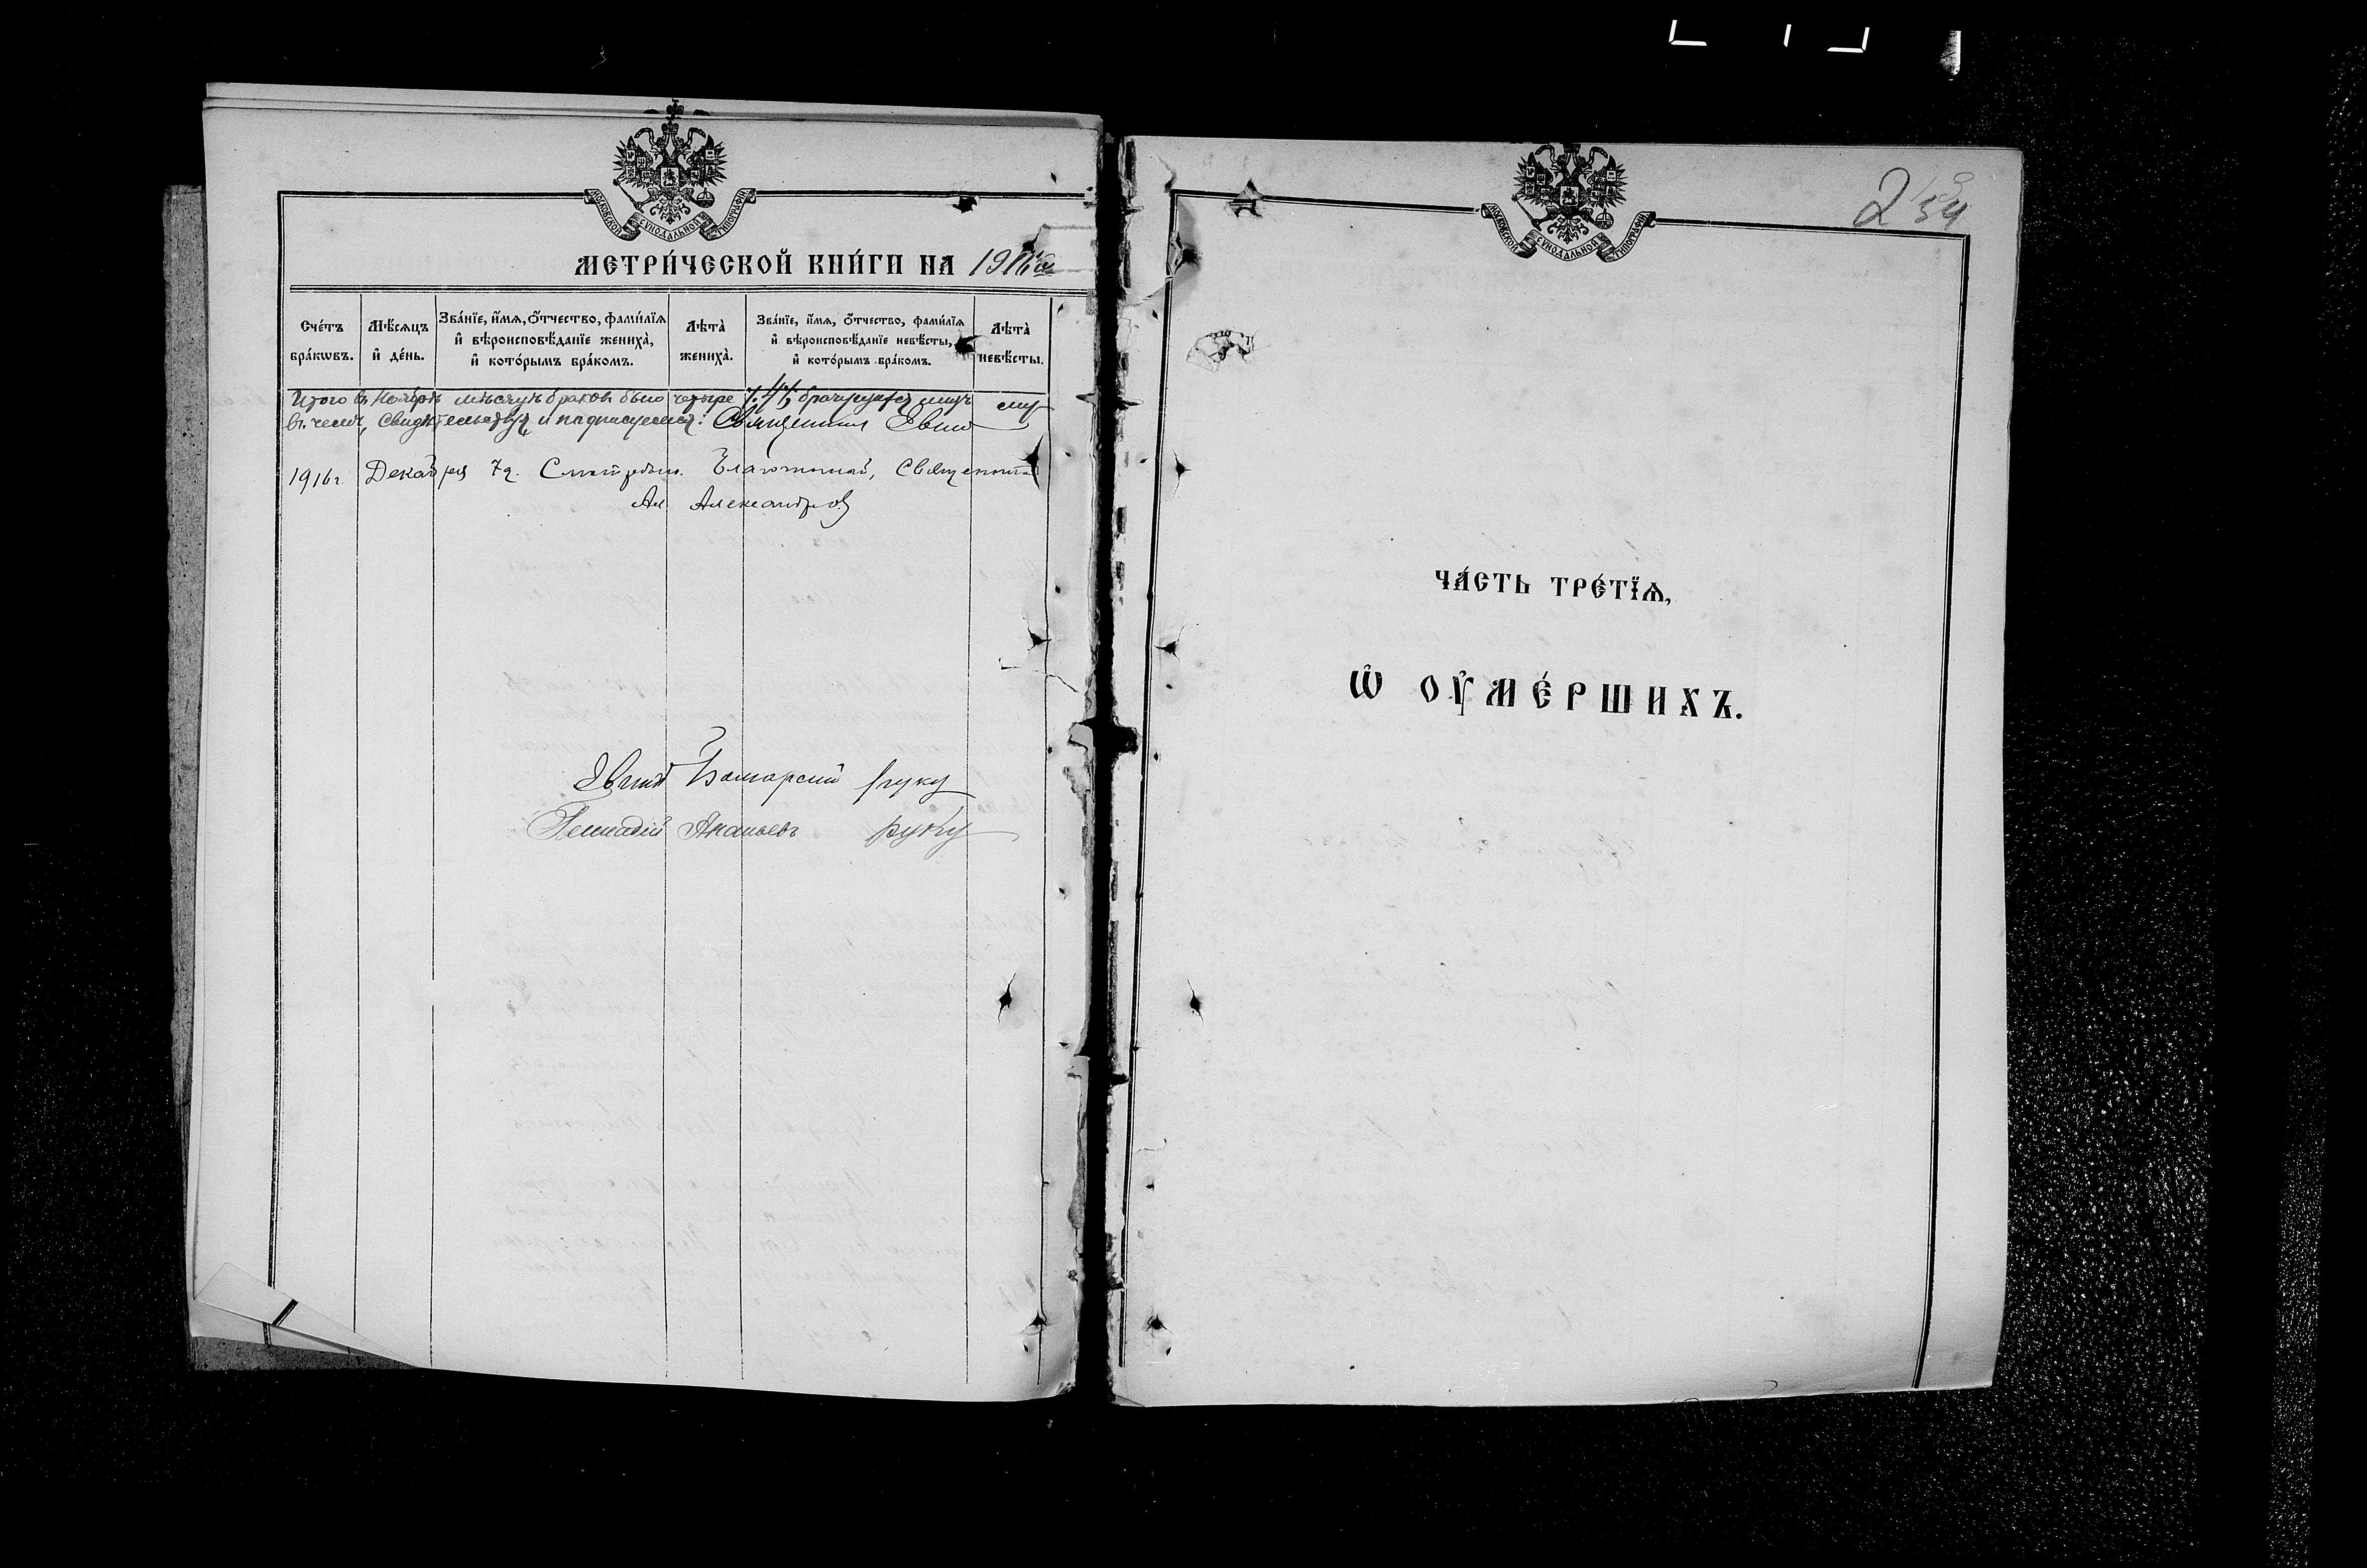 МОСКОВСКОЙ СѴНОДАЛЬНОЙ ТИПОГРАФІИ
МЕТРИ́ЧЕСКОЙ КНИ́ГИ НА 1916
Сче́тъ бра́кωвъ.
Мѣ́сѧцъ и҆ де́нь.
Зва́нїе, и҆́мѧ, ѻ҆́тчество, фами́лїѧ
и҆ вѣроисповѣ́данїе женихà,
и҆ кото́рымъ бра́комъ.
Лѣтà женихà.
Зва́нїе, и҆́мѧ, ѻ҆́тчество, фами́лїѧ
и҆ вѣроисповѣ́данїе невѣ́сты,
и҆ кото́рымъ бра́комъ.
Лѣтà невѣ́сты.
Итого въ Ноябрѣ мѣсяцѣ браковъ было четыре /:4:/,
въ чемъ, и подписуемся: Священникъ
1916 г. Декабря 7 д. Смотрѣлъ. Благочинный, Священникъ
Ал Александровъ
руку
Геннадій Ананьевъ руку
МОСКОВСКОЙ СѴНОДАЛЬНОЙ ТИПОГРАФІИ
254
ЧА́СТЬ ТРЕ́ТЇѦ,
Ѡ҆ ОУ҆МЕ́РШИХЪ.